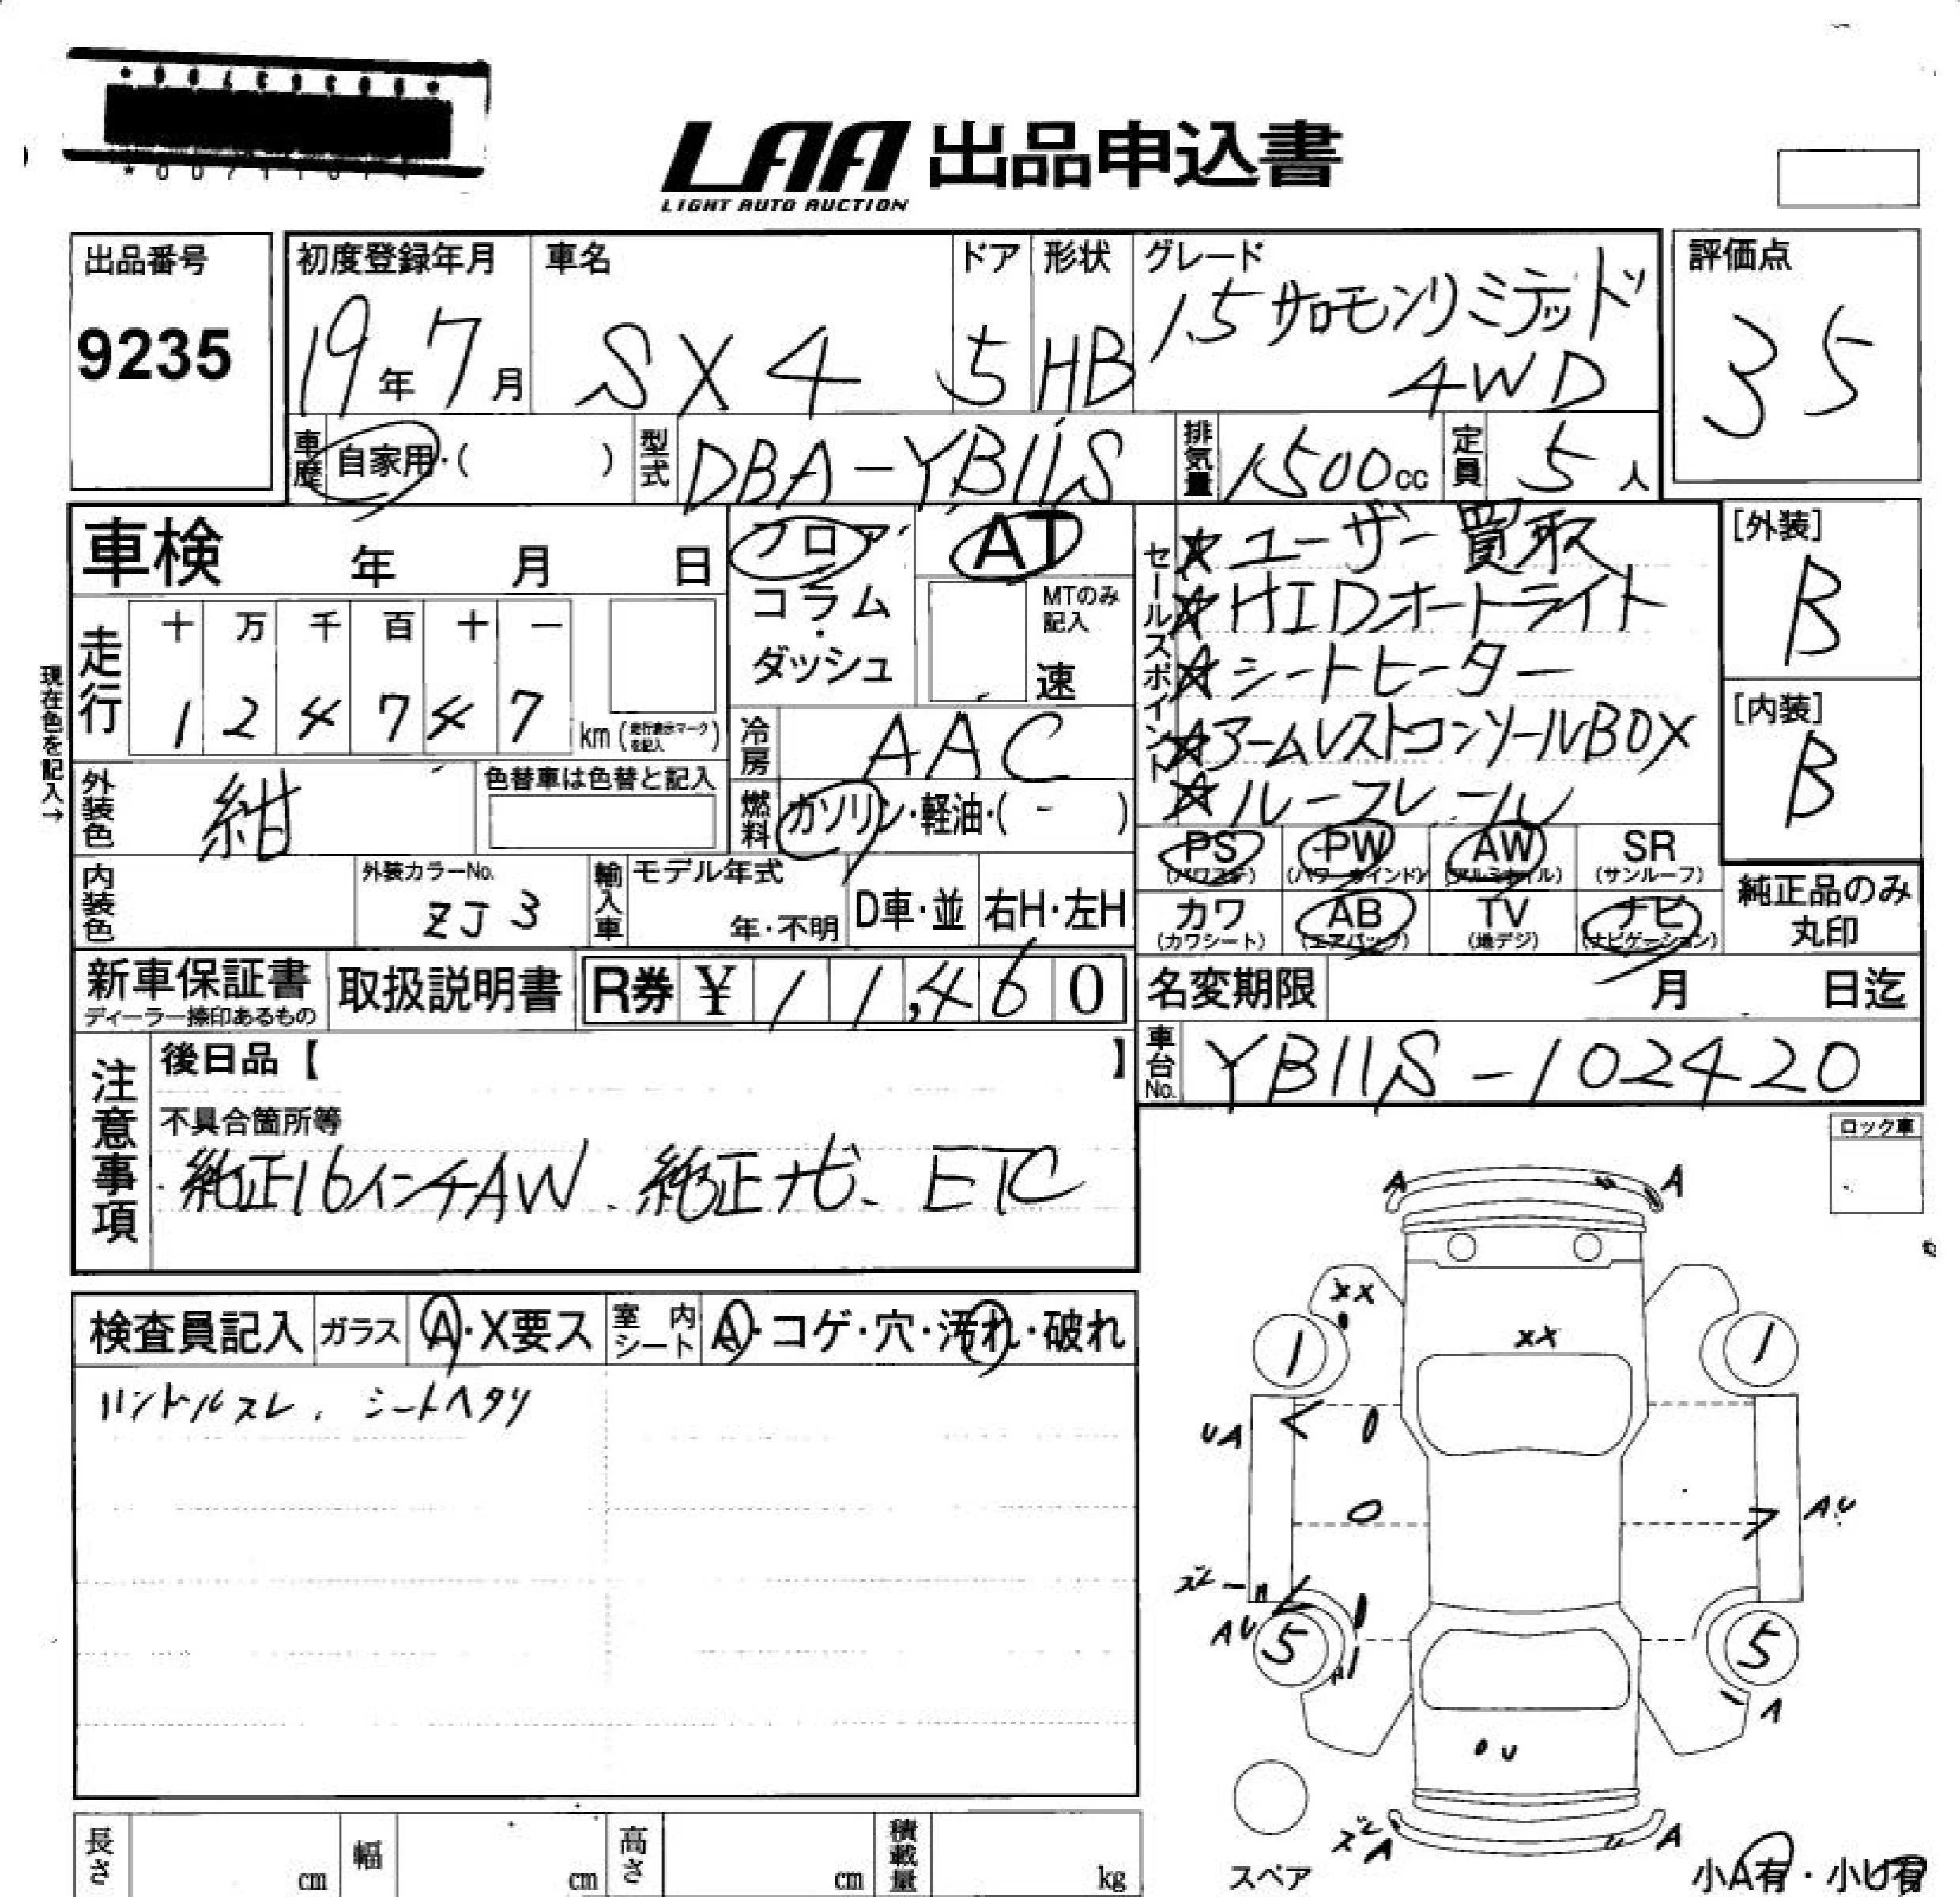 LAA 出品申込書
LIGHT AUTO AUCTION
出品番号
9235
初度登録年月
19年7月
車名
SX4
ドア
5
形状
HB
グレード
1.5サロモンリミテッド
4WD
評価点
35
車歴 自家用・( )
型式 DBA-YB11S
排気量 1500cc
定員 5人
車検 年 月 日
フロア・
コラム・
ダッシュ
AT
MTのみ
記入
速
現在色を記入→
走行
十 万 千 百 十 一
1 2 4 7 4 7
km(走行表示マークを記入)
冷房 AAC
外装色 紺
色替車は色替と記入
燃料 ガソリン・軽油・(-)
内装色
外装カラーNo.
ZJ3
輸入車
モデル年式
年・不明
D車・並
右H・左H
セールスポイント
☆ユーザー買取
☆HIDオートライト
☆シートヒーター
☆アームレストコンソールBOX
☆ルーフレール
[外装]
B
[内装]
B
PS
(パワステ)
PW
(パワーウインド)
AW
(アルミホイル)
SR
(サンルーフ)
カワ
(カワシート)
AB
(エアバック)
TV
(地デジ)
ナビ
(ナビゲーション)
純正品のみ
丸印
新車保証書
ディーラー捺印あるもの
取扱説明書
R券 ¥ 11,460
名変期限 月 日迄
車台No. YB11S-102420
注意事項
後日品【 】
不具合箇所等
純正16インチAW、純正ナビ、ETC
ロック車
検査員記入
ガラス A・X要ス
室内シート A・コゲ・穴・汚れ・破れ
ハンドルスレ、シートヘタリ
A A
XX
XX
1 1
UA
AU
ズレ
AU
5 5
A
U
ズレ
A A
スペア
小A有・小U有
長さ cm
幅 cm
高さ cm
積載量 kg